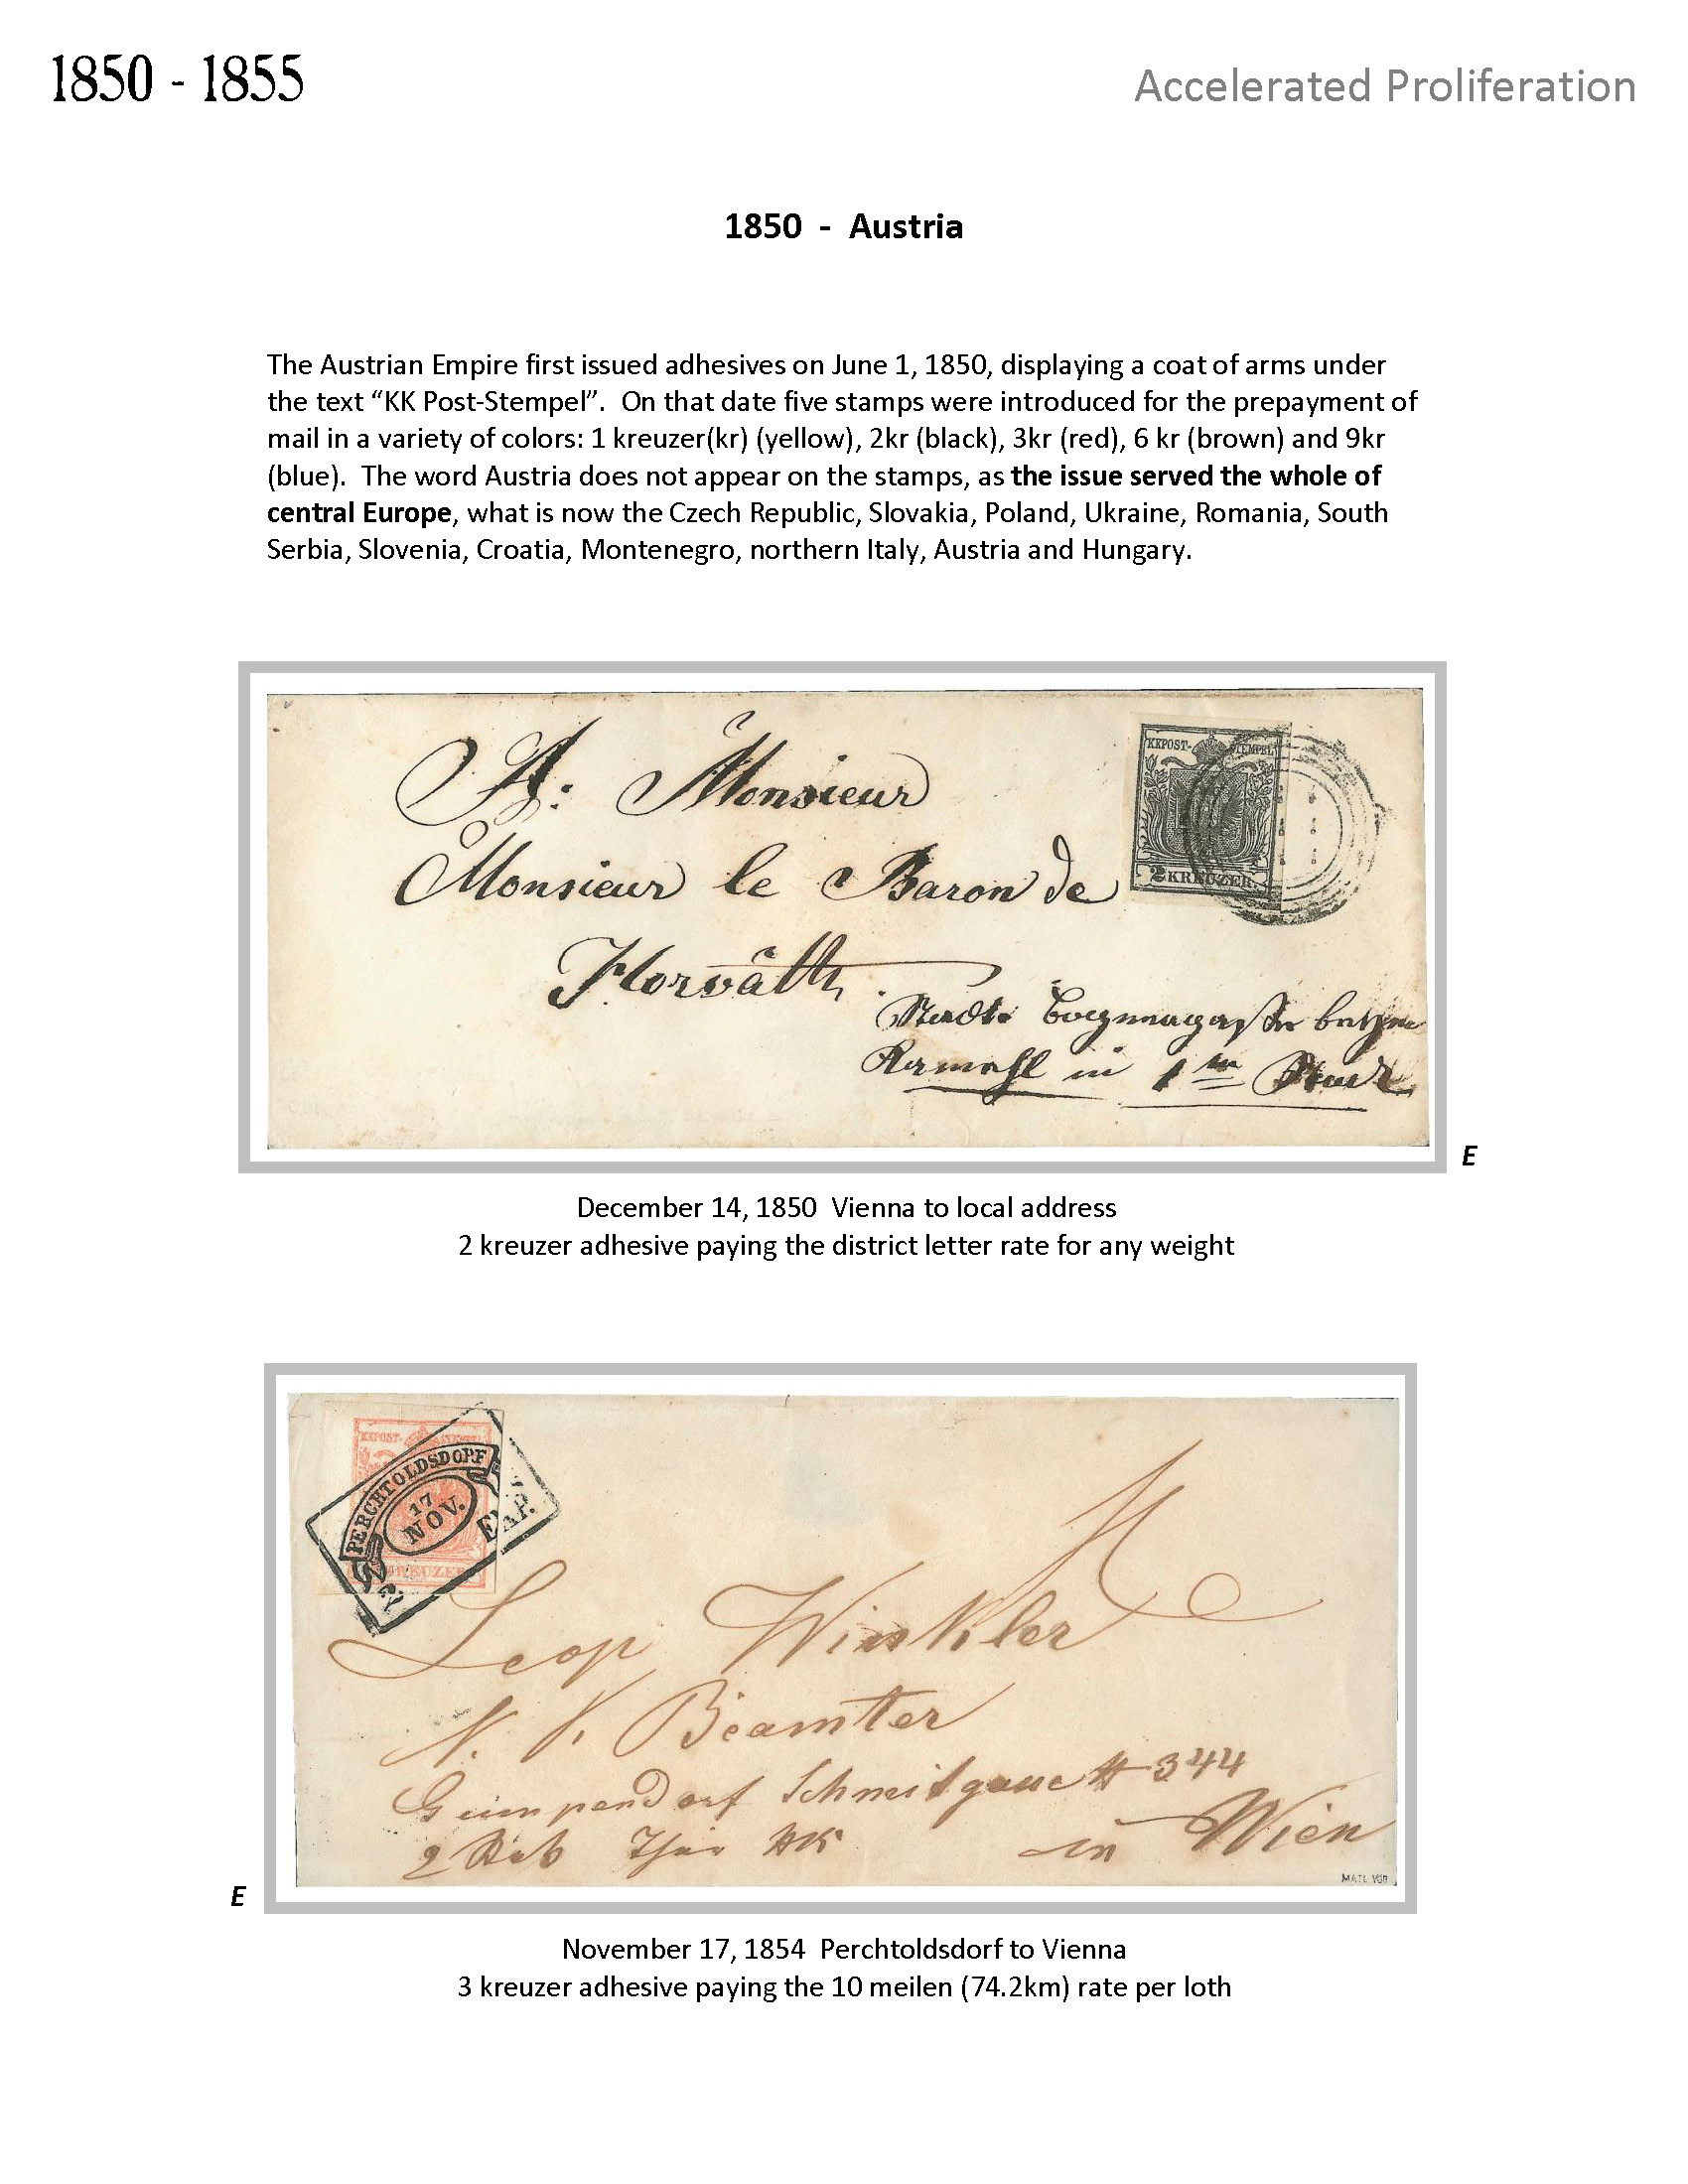 1850 - 1855
Accelerated Proliferation
1850 - Austria
The Austrian Empire first issued adhesives on June 1, 1850, displaying a coat of arms under
the text “KK Post-Stempel”. On that date five stamps were introduced for the prepayment of
mail in a variety of colors: 1 kreuzer(kr) (yellow), 2kr (black), 3kr (red), 6 kr (brown) and 9kr
(blue). The word Austria does not appear on the stamps, as the issue served the whole of
central Europe, what is now the Czech Republic, Slovakia, Poland, Ukraine, Romania, South
Serbia, Slovenia, Croatia, Montenegro, northern Italy, Austria and Hungary.
KKPOST-STEMPEL
2 KREUZER.
A: Monsieur
Monsieur le Baron de
Horváth
in 1m
E
December 14, 1850 Vienna to local address
2 kreuzer adhesive paying the district letter rate for any weight
KKPOST-STEMPEL
PERCHTOLDSDORF
17
NOV.
EXP.
KREUZER
Leop Winkler
Beamter
Gumpendorf Schmidgasse # 344
in Wien
E
November 17, 1854 Perchtoldsdorf to Vienna
3 kreuzer adhesive paying the 10 meilen (74.2km) rate per loth